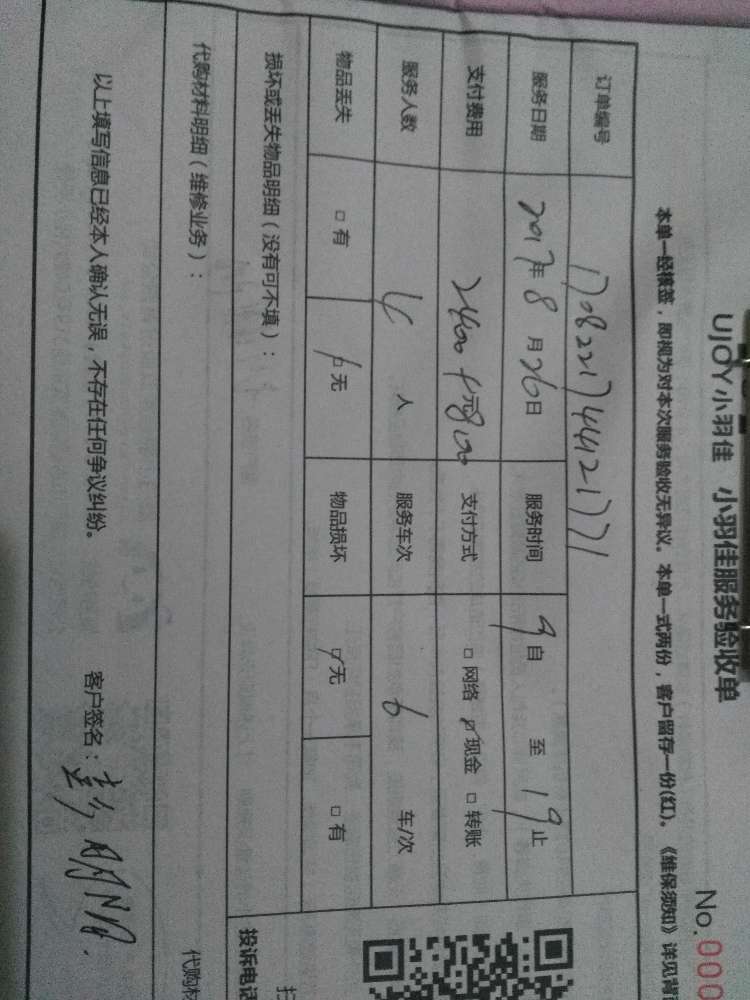 UJOY小羽佳 小羽佳服务验收单
No.000
本单一经横签，即视为对本次服务验收无异议。本单一式两份，客户留存一份(红)。《维保须知》详见背
订单编号 170822174412171
服务日期 2017年8月26日 服务时间 9自 至19止
支付费用 2400+元800 支付方式 □网络 ☑现金 □转账
服务人数 人 服务车次 6 车/次
物品丢失 □有 ☑无 物品损坏 ☑无 □有
损坏或丢失物品明细（没有可不填）：
投诉电话
代购材料明细（维修业务）：
代购材
以上填写信息已经本人确认无误，不存在任何争议纠纷。 客户签名：彭